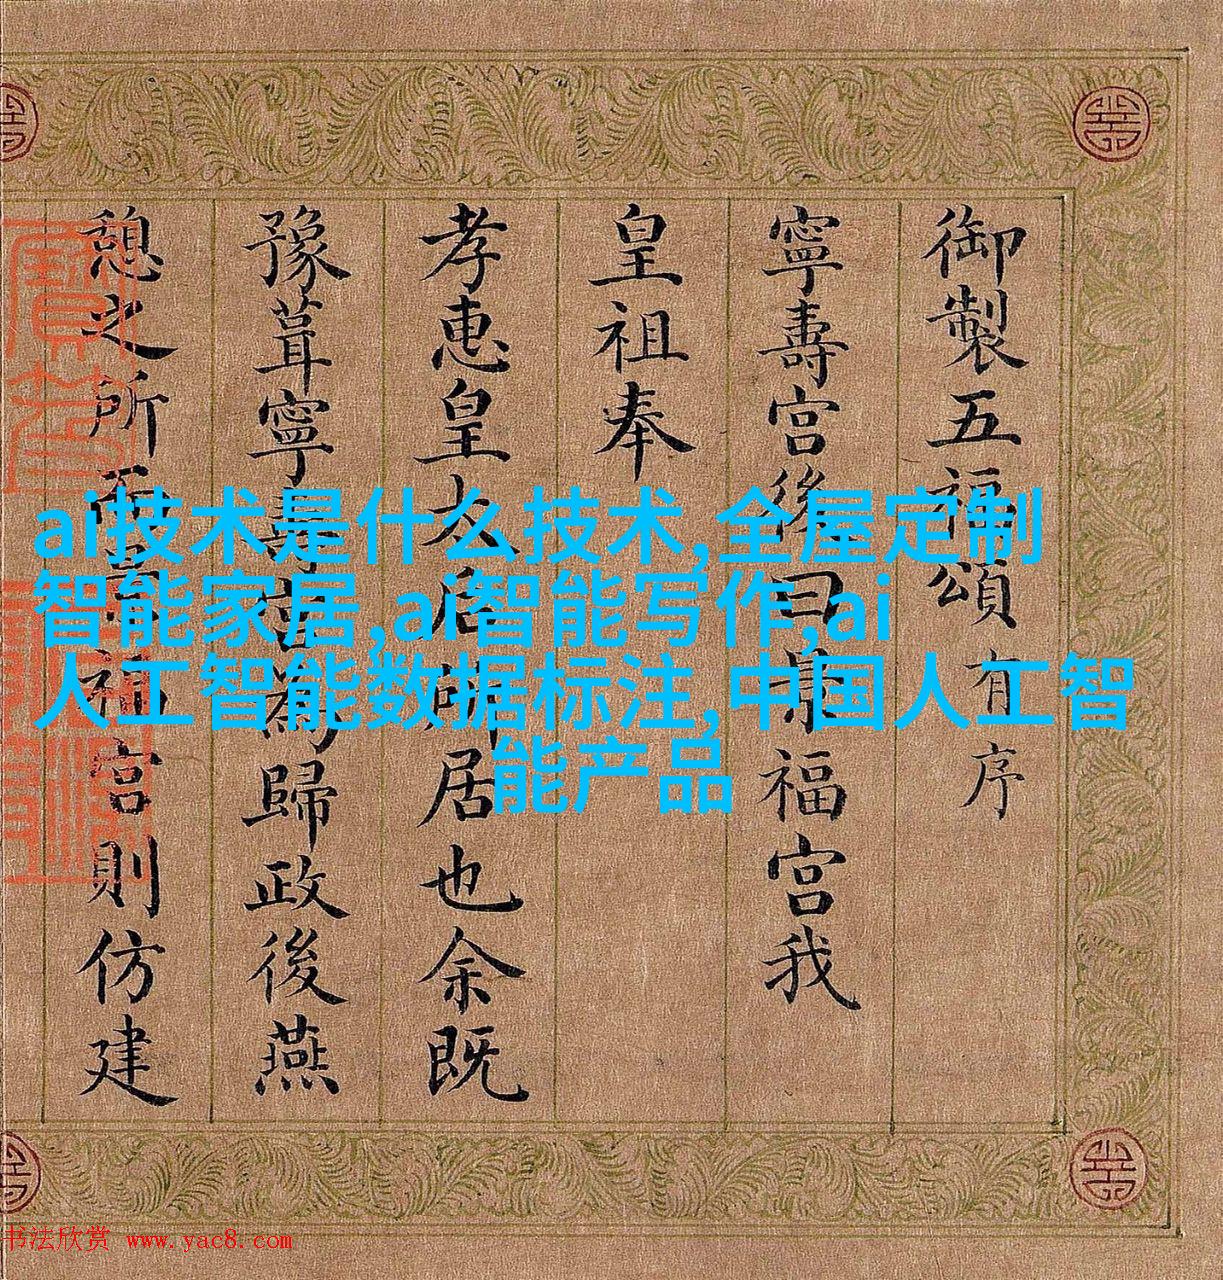 御製五福頌有序
寧壽宫後曰景福宫我
皇祖奉
孝惠皇太后所居也余既
豫葺寧壽宫為歸政後燕
憩之所而景福宫則仿建
ai技术是什么技术,全屋定制
智能家居,ai智能写作,ai
人工智能数据标注,中国人工智
能产品
书法欣赏 www.yac8.com